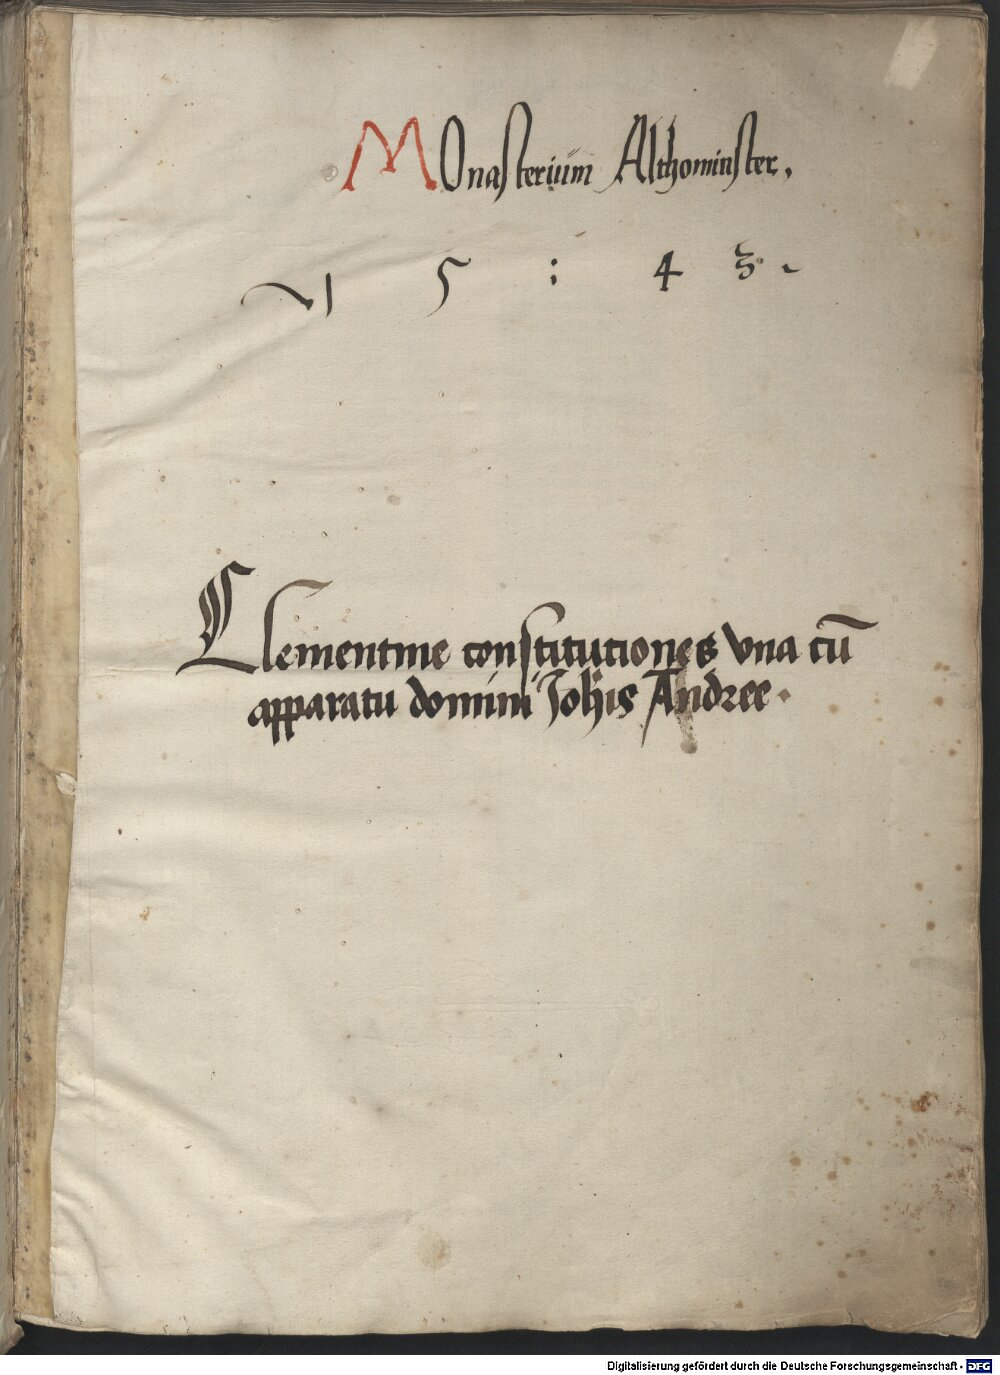 MOnasterium Althominster.
1 5 : 4 3.
Clementine constitutiones vna cū
apparatu domini Joh̄is Andree.
Digitalisierung gefördert durch die Deutsche Forschungsgemeinschaft - DFG